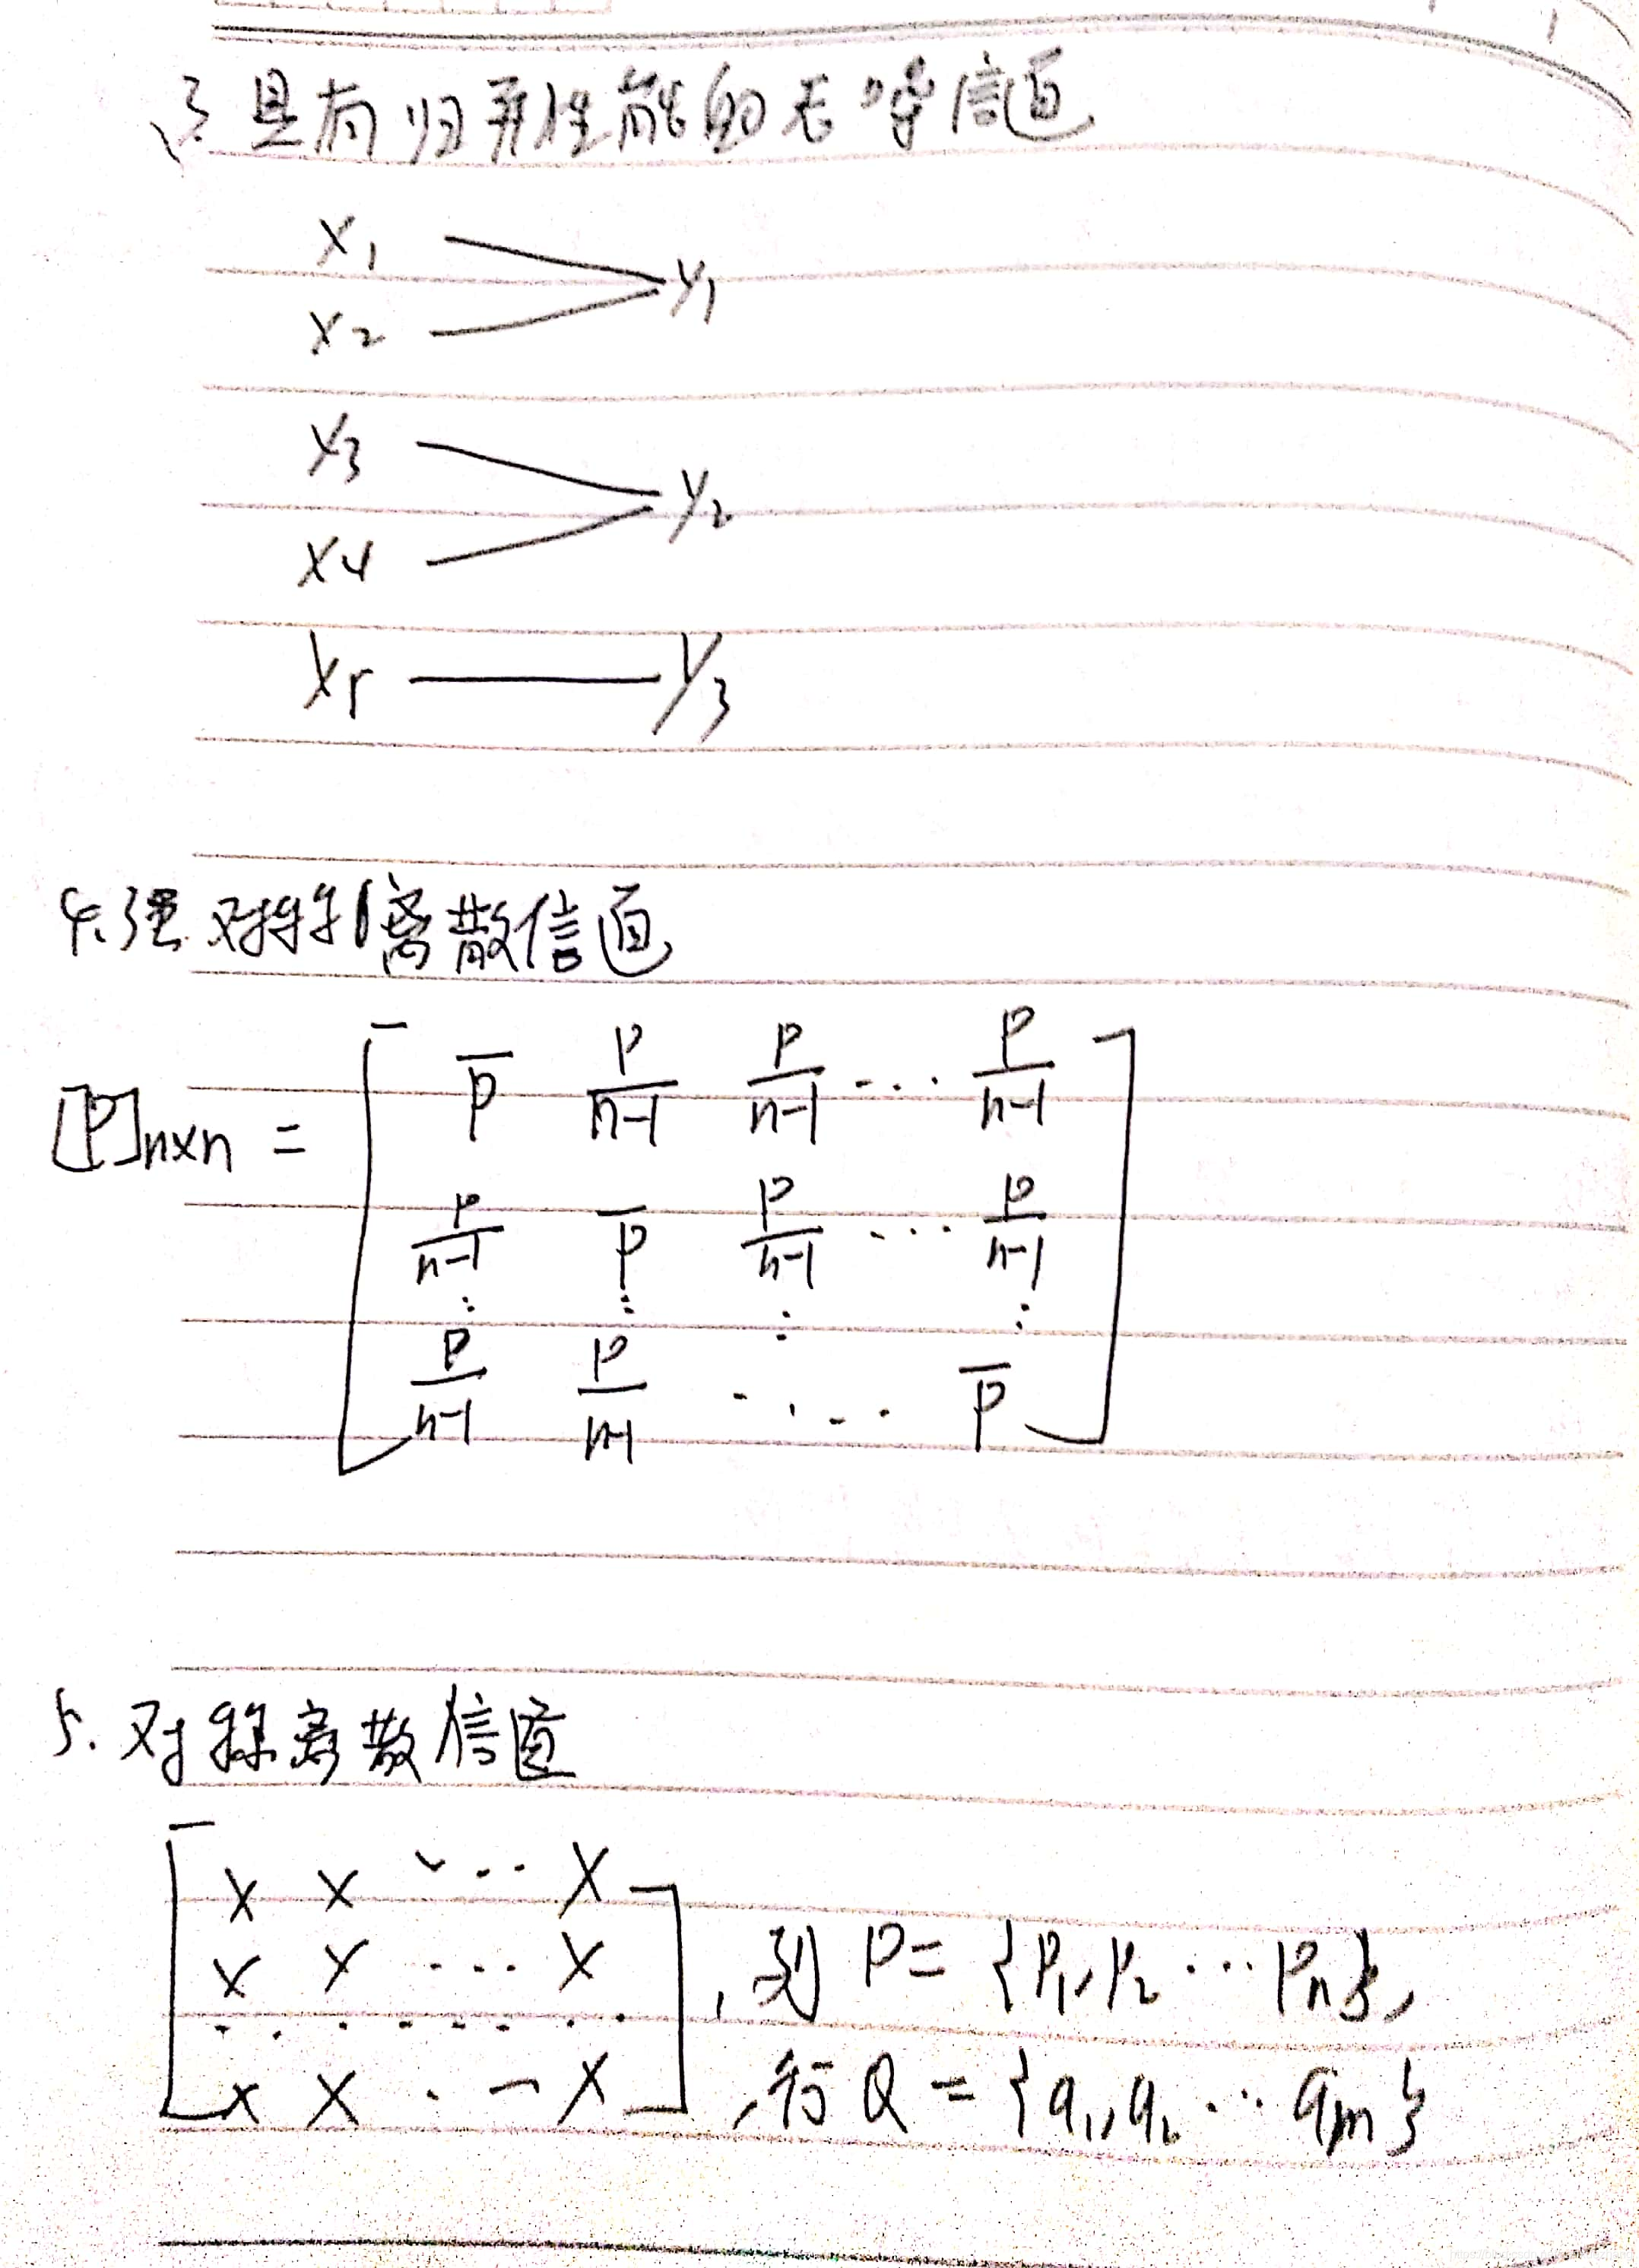 3. 具有归并性能的无噪信道
x₁
y₁
x₂
x₃
y₂
x₄
x₅ y₃
4. 强对称离散信道
[P]n×n = [ p̄ p/(n-1) p/(n-1) ... p/(n-1)
p/(n-1) p̄ p/(n-1) ... p/(n-1)
⋮ ⋮ ⋮ ⋮
p/(n-1) p/(n-1) ..... p̄ ]
5. 对称离散信道
[ x x ... x
x x ... x , 列 P = {p₁, p₂ ... pₙ},
. . . . . . . .
x x ... x ] , 行 Q = {q₁, q₂ ... qm}